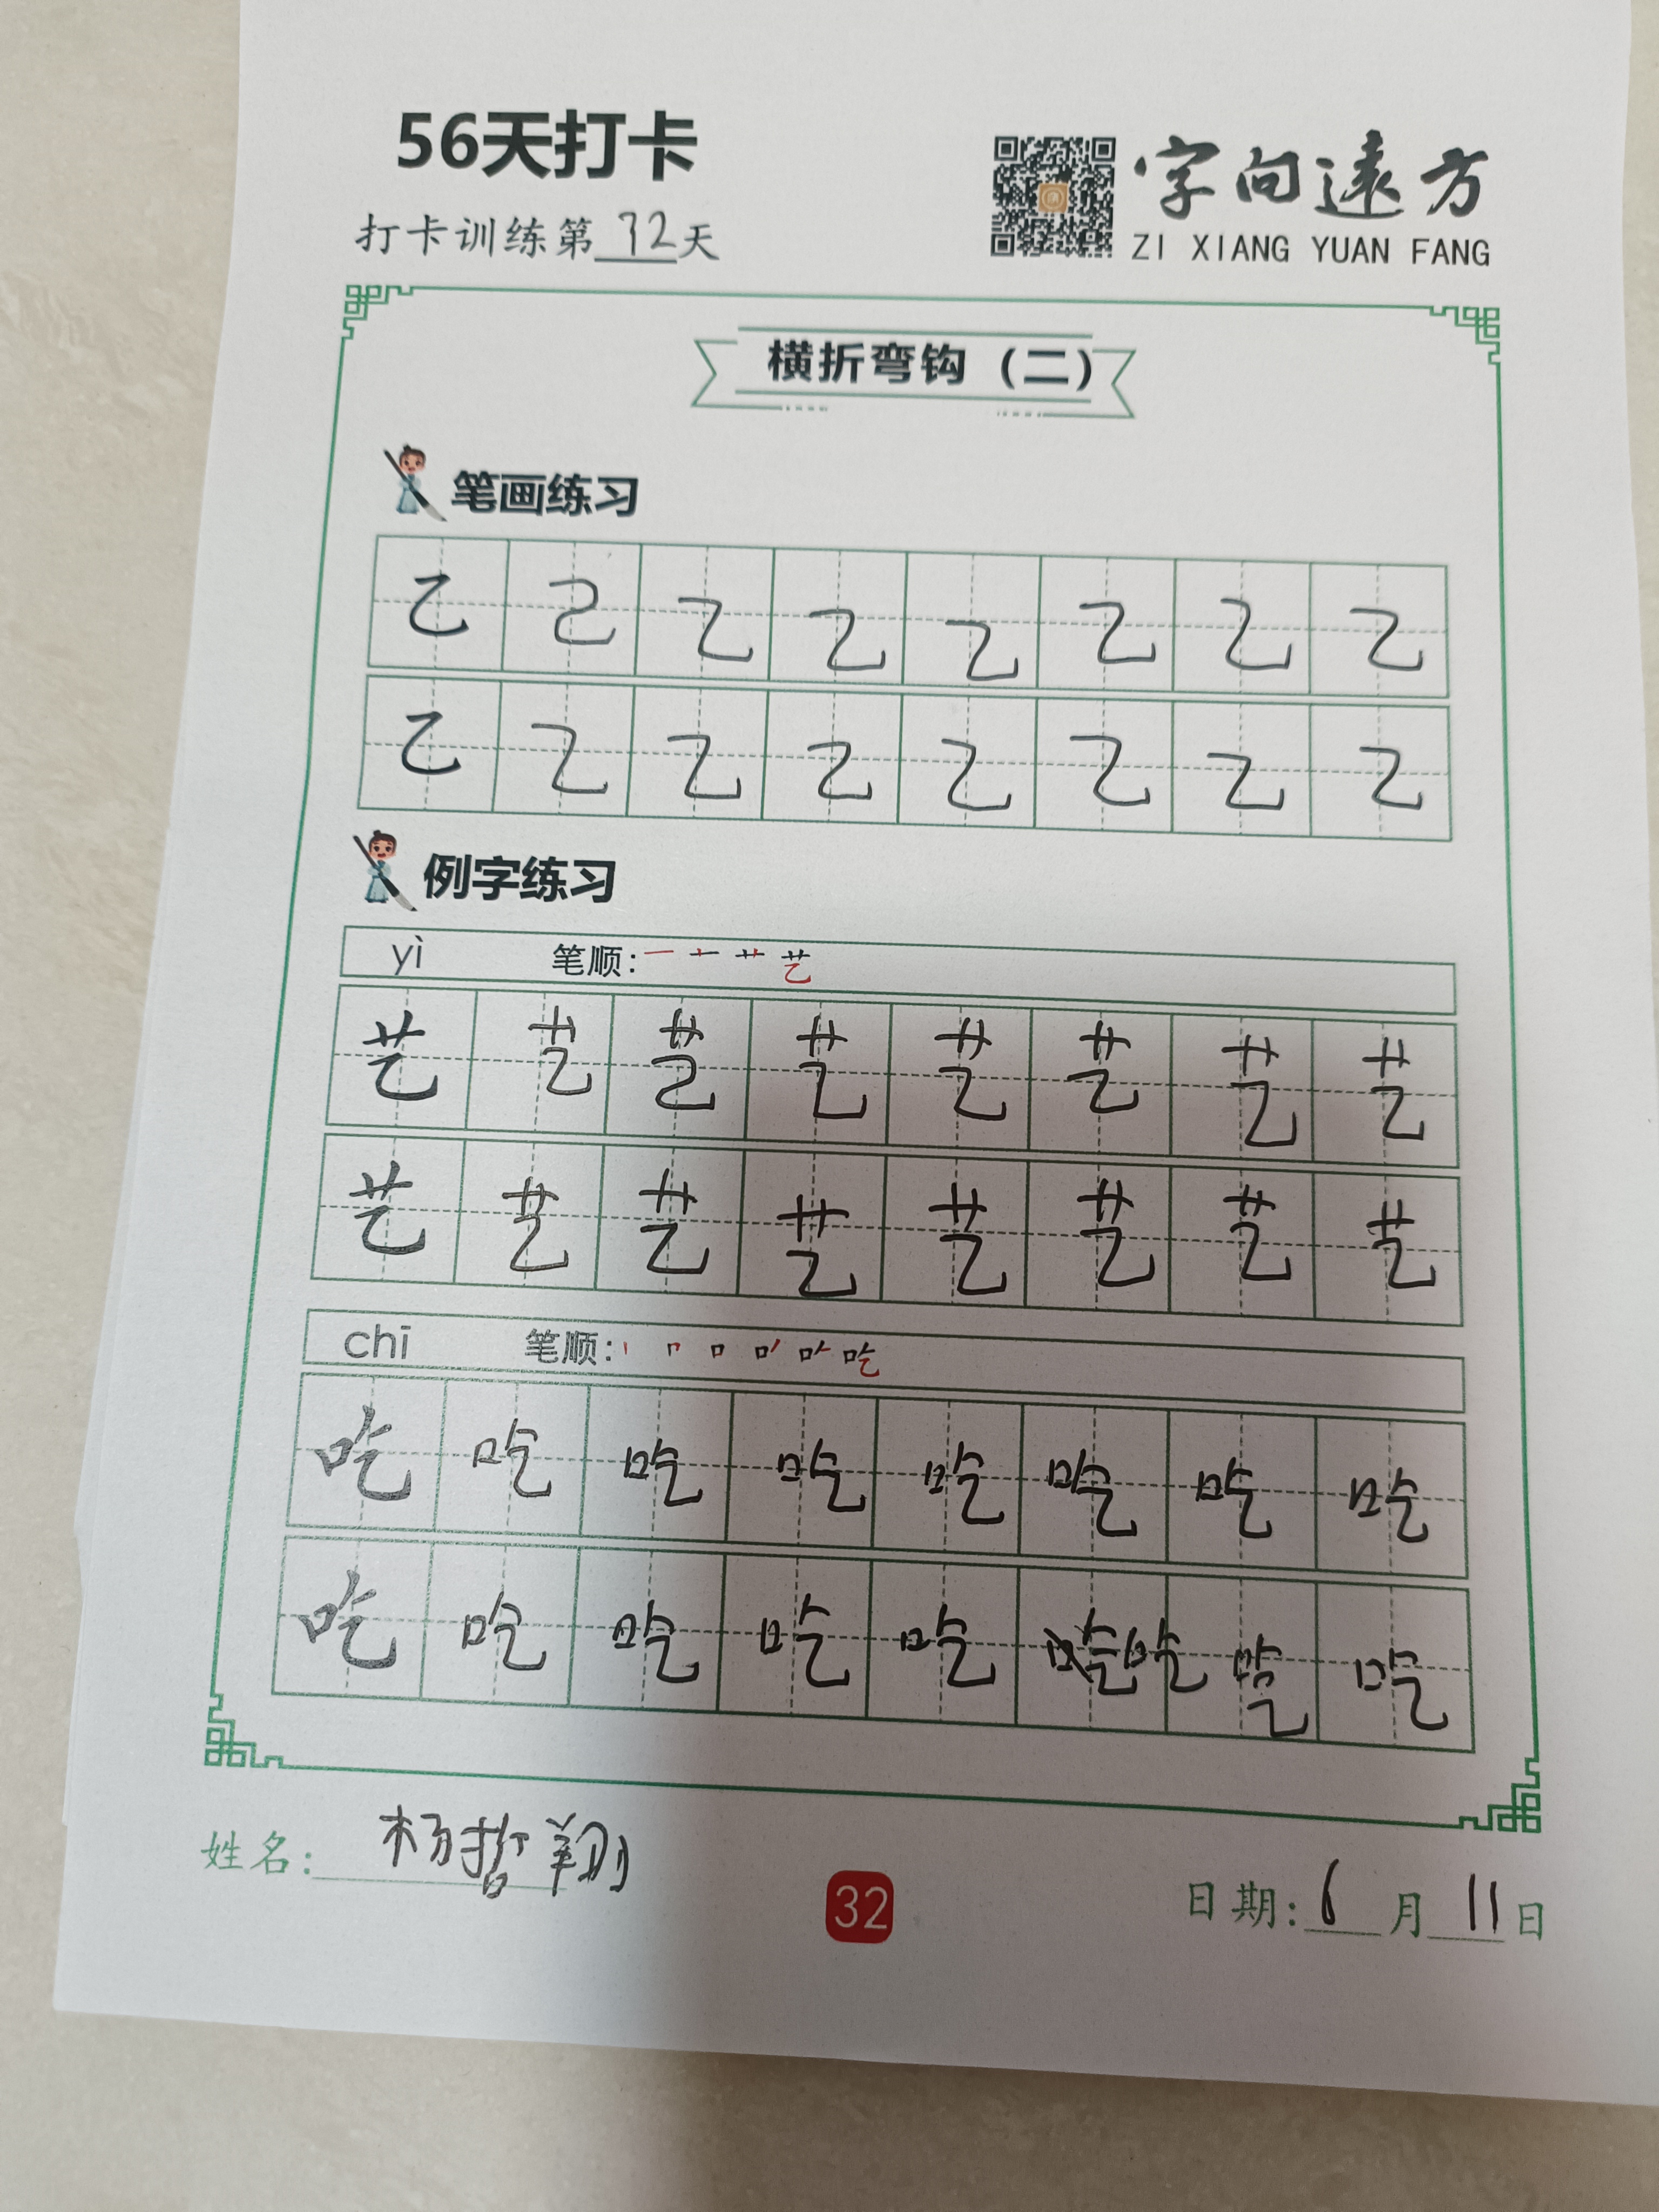 56天打卡
字向遠方
打卡训练第32天
ZI XIANG YUAN FANG
横折弯钩（二）
笔画练习
乙 乙 乙 乙 乙 乙 乙 乙
乙 乙 乙 乙 乙 乙 乙 乙
例字练习
yì 笔顺: 一 十 艹 艺
艺 艺 艺 艺 艺 艺 艺 艺
艺 艺 艺 艺 艺 艺 艺 艺
chī 笔顺: 丨 冂 口 口丿 口𠂉 吃
吃 吃 吃 吃 吃 吃 吃 吃
吃 吃 吃 吃 吃 吃 吃 吃
姓名: 杨哲翔
32
日期: 6月11日